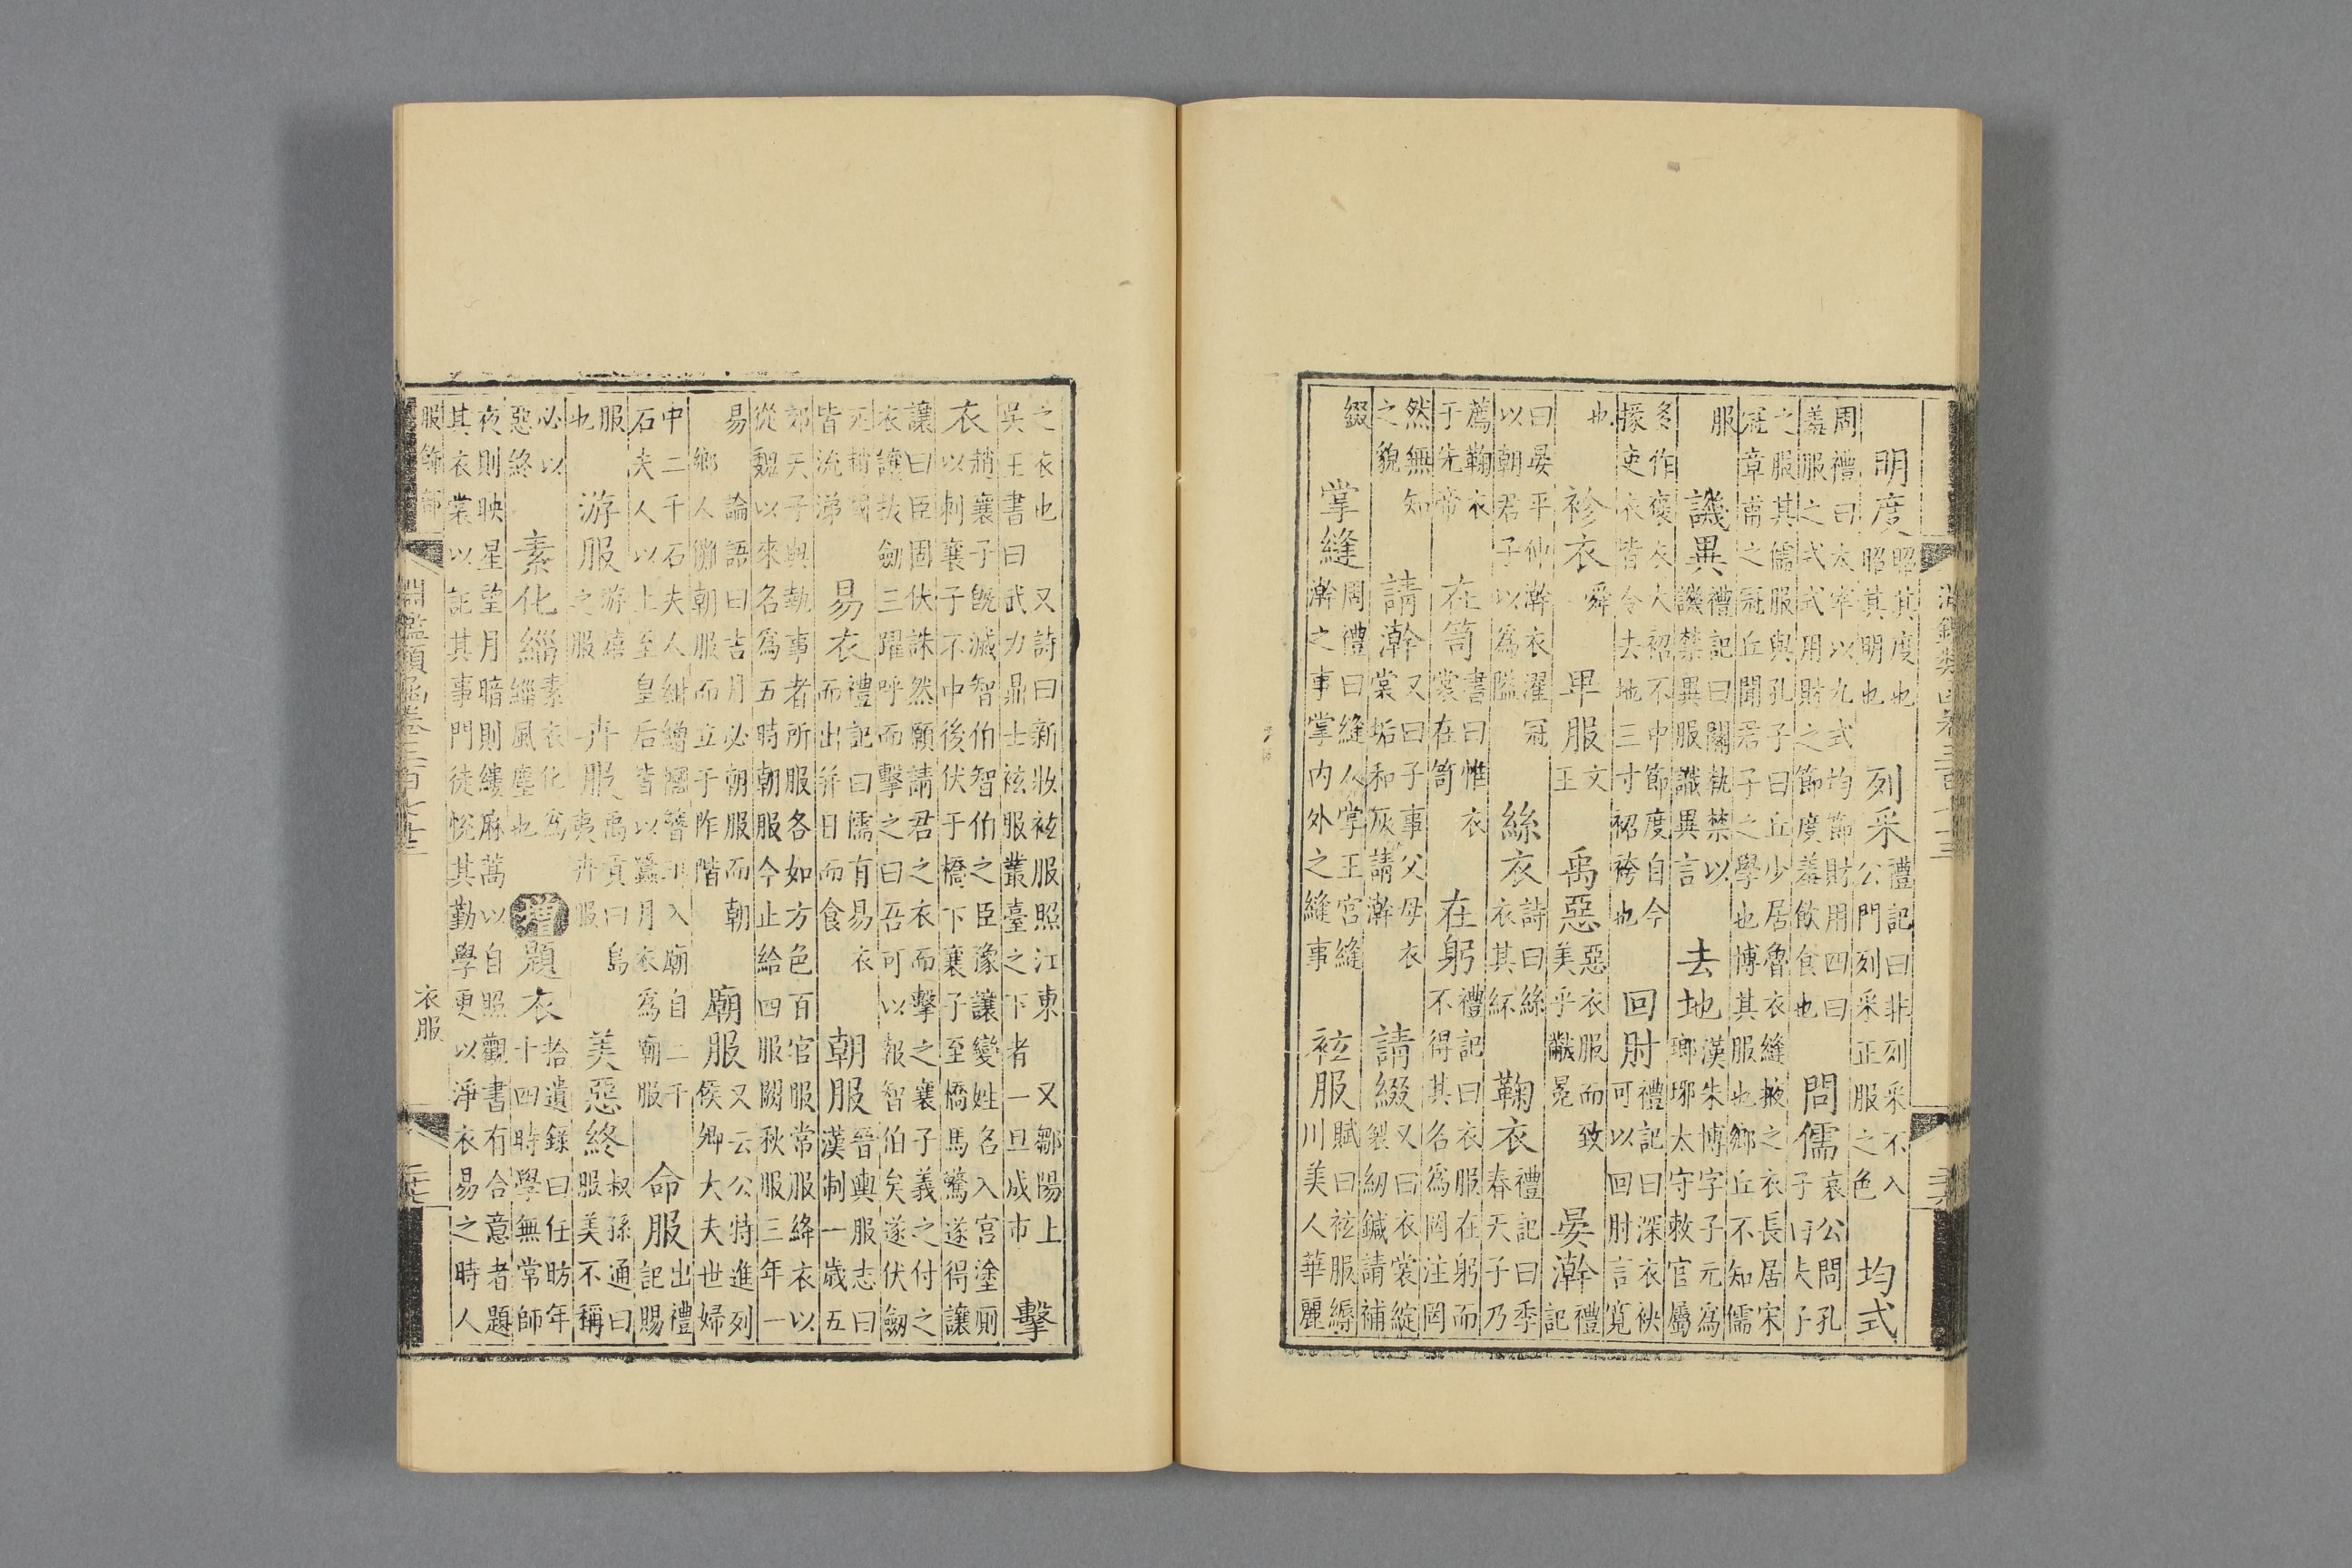 淵鑑類函卷三百七十三
明度昭其度也昭其明也 列采禮記曰非列采不入公門列采正服之色 均式
周禮曰太宰以九式均節財用四曰羞服之式式用財之節度羞飲食也 問儒哀公問孔子曰夫子
之服其儒服與孔子曰丘少居魯衣縫掖之衣長居宋冠章甫之冠丘聞君子之學也博其服也鄉丘不知儒
服 譏異禮記曰關執禁以譏禁異服識異言 去地漢朱博字子元為瑯琊太守敕官屬
多作褒衣大袑不中節度自今掾吏衣皆令去地三寸袑袴也 回肘禮記曰深衣袂可以回肘言寬
也 袗衣舜 卑服文王 禹惡惡衣服而致美乎黻冕 晏澣禮記
曰晏平仲澣衣濯冠以朝君子以為隘 絲衣詩曰絲衣其紑 鞠衣禮記曰季春天子乃
薦鞠衣于先帝 在笥書曰惟衣裳在笥 在躬禮記曰衣服在躬而不得其名為罔注罔
然無知之貌 請澣又曰子事父母衣裳垢和灰請澣 請綴又曰衣裳綻裂紉鍼請補
綴 掌縫周禮曰縫人掌王宮縫澣之事掌内外之縫事 袨服賦曰袨服縟川美人華麗
之衣也 又詩曰新妝袨服照江東 又鄒陽上吳王書曰武力鼎士袨服叢臺之下者一旦成市 擊
衣趙襄子既滅智伯智伯之臣豫讓變姓名入宮塗厠以刺襄子不中後伏于橋下襄子至橋馬驚遂得讓
讓曰臣固伏誅然願請君之衣而擊之襄子義之付之衣讓拔劒三躍呼而擊之曰吾可以報智伯矣遂伏劒
死趙國皆流涕 易衣禮記曰儒有易衣而出并日而食 朝服晉輿服志曰漢制一歲五
郊天子與執事者所服各如方色百官服常服絳衣以從魏以來名為五時朝服今止給四服闕秋服三年一
易 論語曰吉月必朝服而朝鄉人儺朝服而立于阼階 廟服又云公特進列侯卿大夫世婦
中二千石夫人紺繒幗簪珥入廟自二千石夫人以上至皇后皆以蠶月衣為廟服 命服出禮記賜
服也 游服游燕之服 卉服禹貢曰島夷卉服 美惡終叔孫通曰服美不稱
必以惡終 素化緇素衣化為緇風塵也 增題衣拾遺錄曰任昉年十四時學無常師
夜則映星望月暗則縷麻蒿以自照觀書有合意者題其衣裳以記其事門徒悅其勤學更以淨衣易之時人
服飾部 淵鑑類函卷三百七十三 衣服